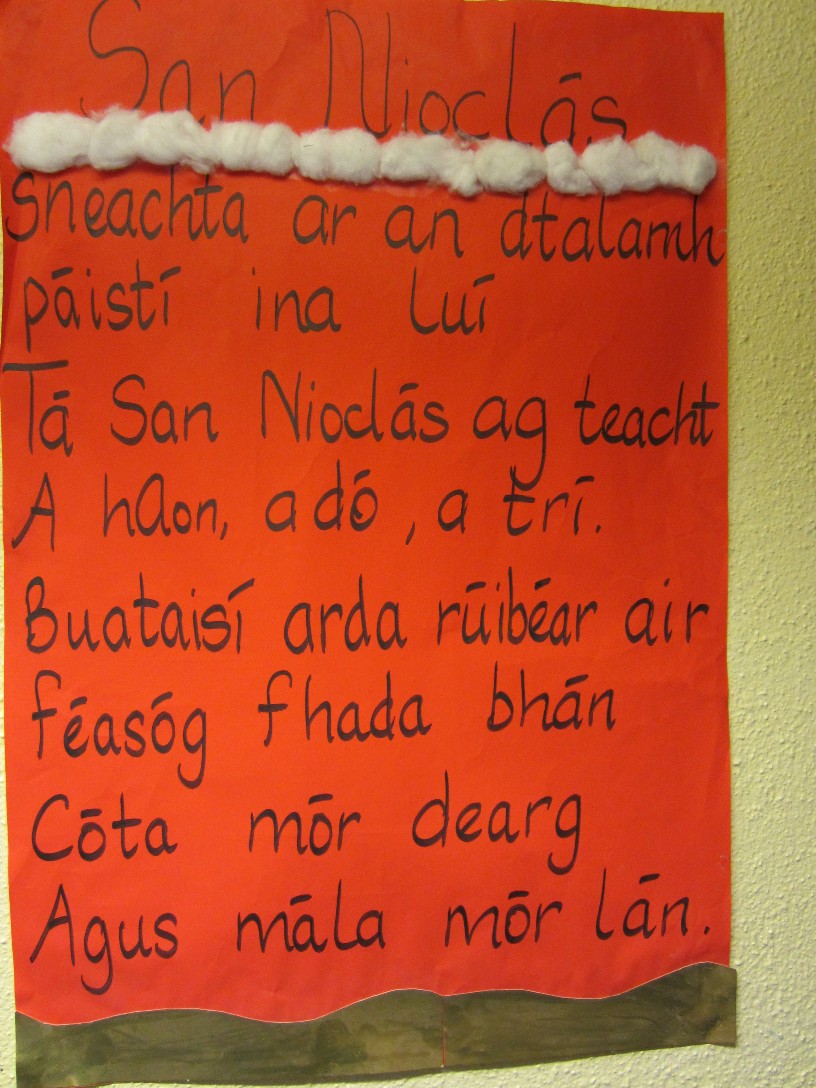 San Nioclás
Sneachta ar an dtalamh
páistí ina luí
Tá San Nioclás ag teacht
A hAon, a dó, a trí.
Buataisí arda rúibéar air
féasóg fhada bhán
Cóta mór dearg
Agus mála mór lán.